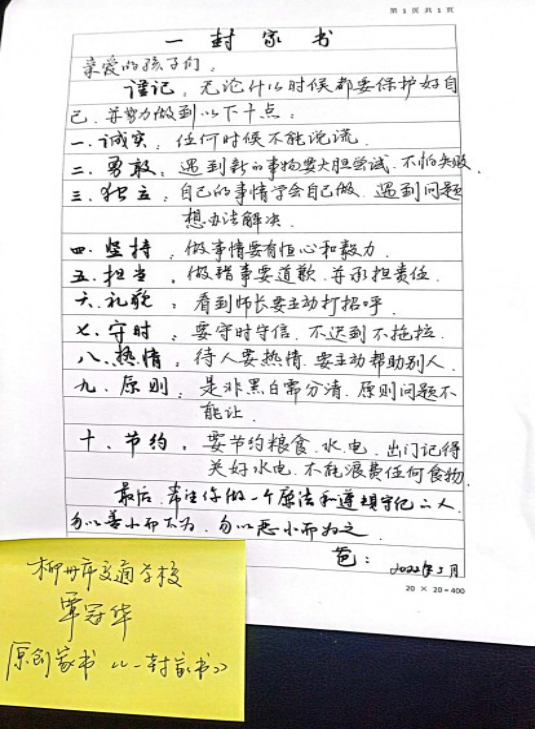 第1页 共1页
一封家书
亲爱的孩子们:
谨记,无论什么时候都要保护好自
己,并努力做到以下十点:
一.诚实:任何时候不能说谎.
二.勇敢:遇到新的事物要大胆尝试.不怕失败.
三.独立:自己的事情学会自己做.遇到问题
想办法解决.
四.坚持:做事情要有恒心和毅力.
五.担当:做错事要道歉.并承担责任.
六.礼貌:看到师长要主动打招呼.
七.守时:要守时守信.不迟到不拖拉.
八.热情:待人要热情.要主动帮助别人.
九.原则:是非黑白需分清.原则问题不
能让.
十.节约:要节约粮食.水.电.出门记得
关好水电.不能浪费任何食物.
最后.牢记你做一个 法和遵规守纪 人.
勿以善小而不为.勿以恶小而为之.
爸:
2022年5月
20 × 20 = 400
柳州市交通学校
覃冠华
原创家书《一封家书》